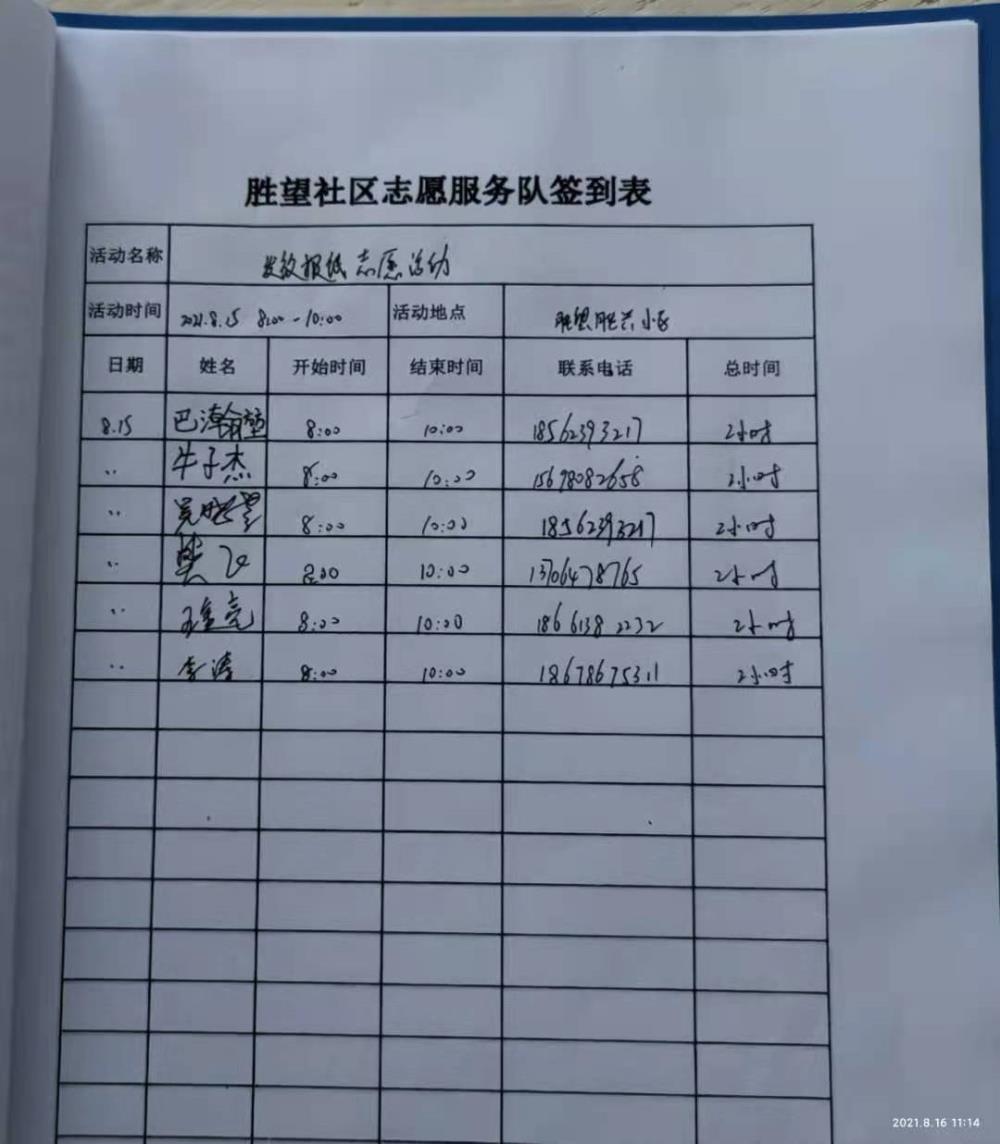 胜望社区志愿服务队签到表
活动名称 发放报纸志愿活动
活动时间 2021.8.15 8:00-10:00 活动地点 小区
日期 姓名 开始时间 结束时间 联系电话 总时间
8.15 巴瀚 8:00 10:00 18562393217 2小时
.. 牛子杰 8:00 10:00 15698082658 2小时
.. 8:00 10:00 18562393217 2小时
.. 樊飞 8:00 10:00 13706478765 2小时
.. 王金亮 8:00 10:00 18661382232 2小时
.. 李涛 8:00 10:00 18678675311 2小时
2021.8.16 11:14